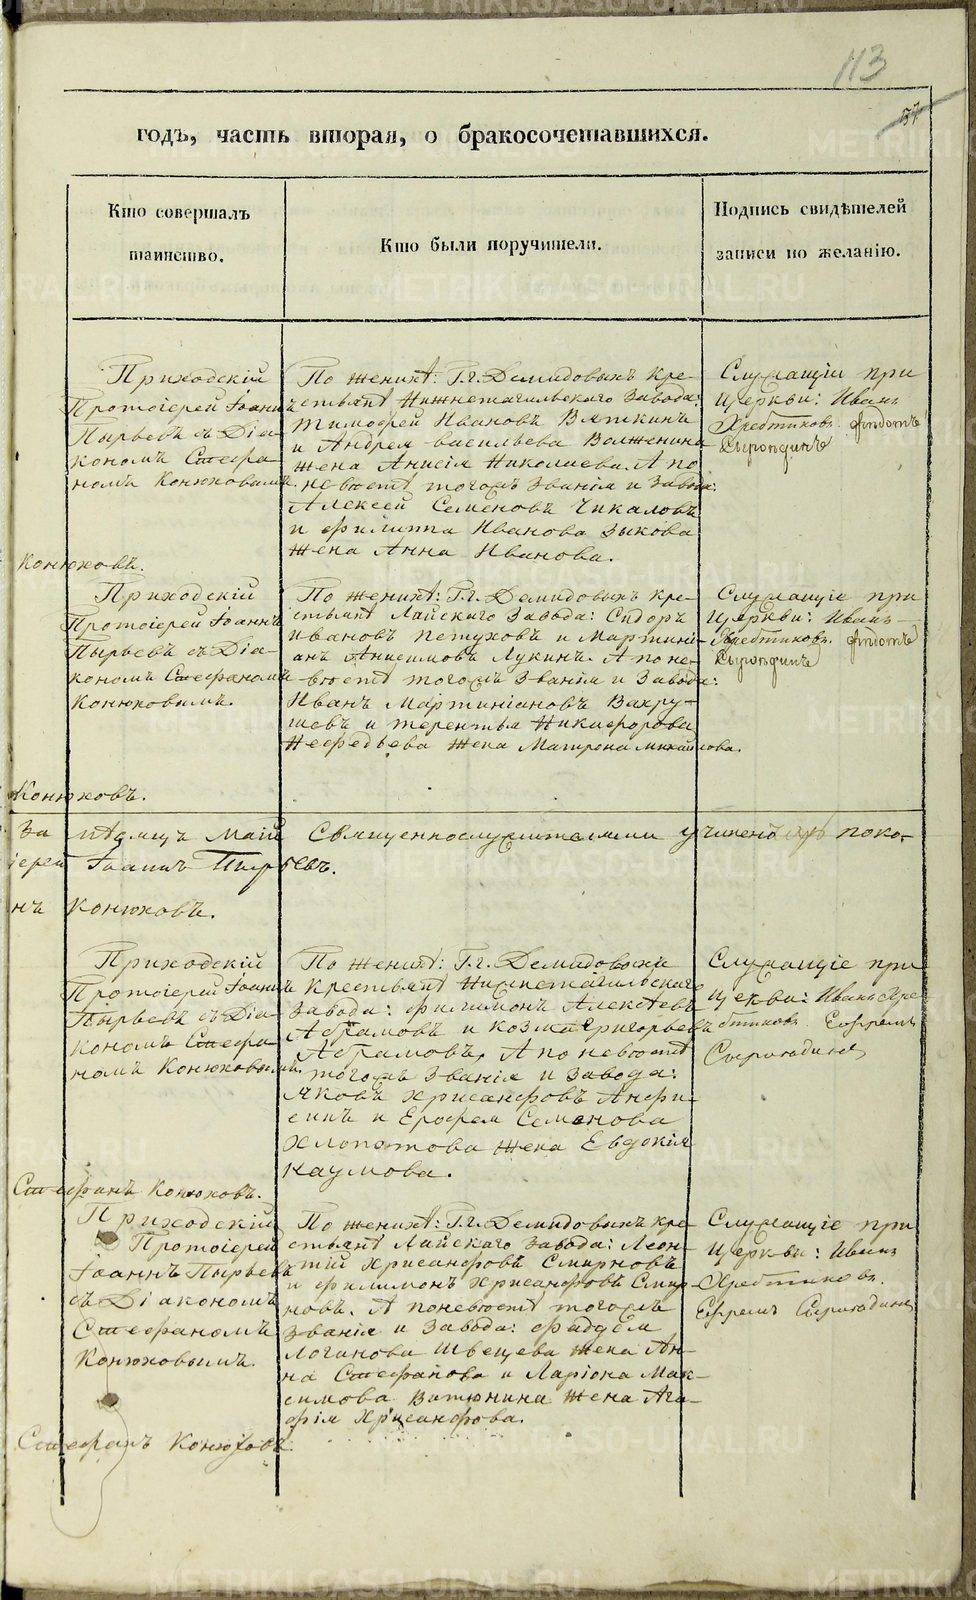 113
57
годъ, часть вторая, о бракосочетавшихся.
Кто совершалъ
таинство.
Кто были поручители.
Подпись свидѣтелей
записи по желанію.
Приходскій
Протоіерей Іоаннъ
Пырьевъ съ Діа-
кономъ Стефа-
номъ Конюховымъ.
По женихѣ: Г.г. Демидовыхъ кре-
стьянѣ Нижнетагильскаго Завода:
Тимофей Ивановъ Вяткинъ
и Андрея Васильева Волженина
жена Анисія Николаева. А по
невѣстѣ тогожъ званія и завода:
Алексей Семеновъ Чикаловъ
и Филиппа Иванова Зыкова
жена Анна Иванова.
Служащіи при
Церкви: Иванъ
Хребтиковъ. Федотъ
Сыропядинъ
Конюховъ.
Приходскій
Протоіерей Іоаннъ
Пырьевъ съ Діа-
кономъ Стефаномъ
Конюховымъ.
По женихѣ: Г.г. Демидовыхъ кре-
стьянѣ Лайскаго Завода: Сидоръ
Ивановъ Петуховъ и Мартині-
анъ Анисимовъ Лукинъ. А по не-
вѣстѣ тогожъ званія и завода:
Иванъ Мартиніановъ Вахру-
шовъ и Терентья Никифорова
Нефедьева жена Матрона Михайлова.
Служащіе при
Церкви: Иванъ
Хребтиковъ. Федотъ
Конюховъ.
За мѣсяцъ Маій Священнослужителями учинено поко-
іерей Іоаннъ Пырьевъ.
нъ Конюховъ.
Приходскій
Протоіерей Іоаннъ
Пырьевъ съ Діа-
кономъ Стефа-
номъ Конюховымъ.
По женихѣ: Г.г. Демидовыхъ
крестьянѣ Нижнетагильскаго
Завода: Филимонъ Алексѣевъ
Абрамовъ и Козма Григорьевъ
Абрамовъ. А по невѣстѣ
тогожъ званія и завода:
Яковъ Хрисанфовъ Анфи-
синъ и Ерофея Семенова
Хлопотова жена Евдокія
Наумова.
Служащіе при
Церкви: Иванъ Хре-
бтиковъ Ефремъ
Стефанъ Конюховъ.
Приходскій
Протоіерей
Іоаннъ Пырьевъ
съ Діакономъ
Стефаномъ
Конюховымъ.
По женихѣ: Г.г. Демидовыхъ кре-
стьянѣ Лайскаго Завода: Леон-
тій Хрисанфовъ Смирновъ
и Филимонъ Хрисанфовъ Смир-
новъ. А по невѣстѣ тогожъ
званія и завода: Фаддея
Логинова Швецева жена Ан-
на Стефанова и Ларіона Мак-
симова Ватюнина жена Ага-
фія Хрисанфова.
Служащіе при
Церкви: Иванъ
Хребтиковъ.
Ефремъ
Стефанъ Конюховъ.
METRIKI.GASO-URAL.RU